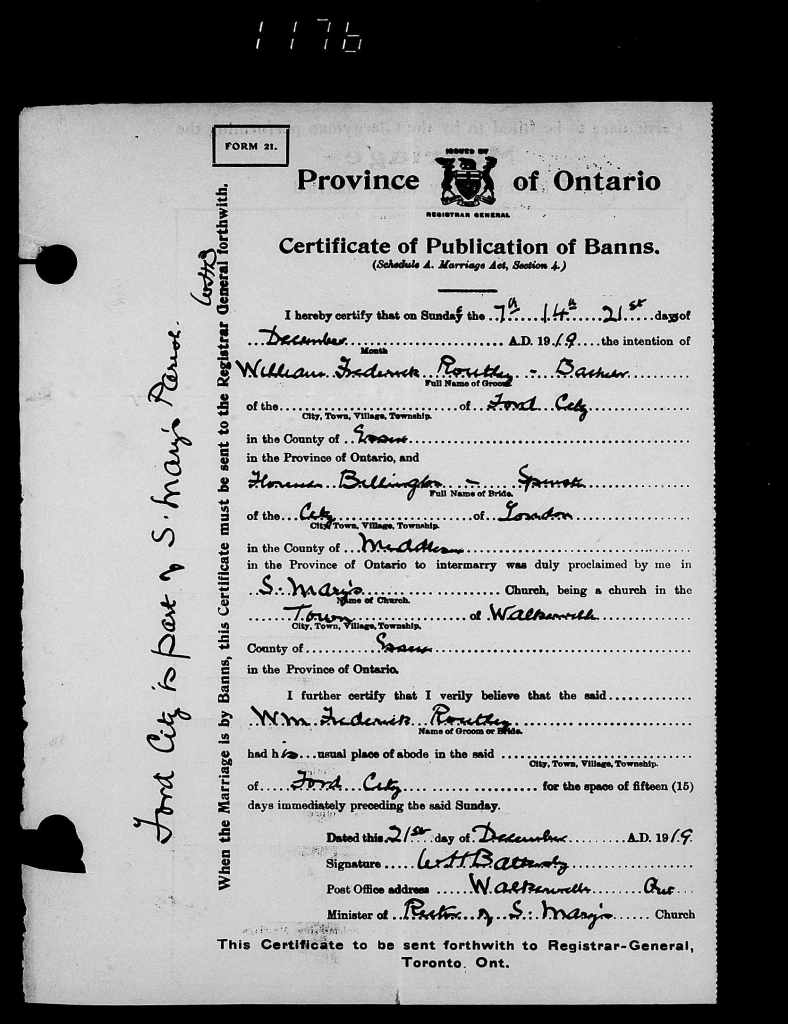 1176
FORM 21.
ISSUED BY
Province of Ontario
REGISTRAR GENERAL
Certificate of Publication of Banns.
(Schedule A. Marriage Act, Section 4.)
I hereby certify that on Sunday the 7th 14th 21st days of
December A.D. 1919 the intention of
Month
William Frederick Routley - Bachelor
Full Name of Groom
of the of Ford City
City, Town, Village, Township.
in the County of Essex
in the Province of Ontario, and
Florence Billington - Spinster
Full Name of Bride.
of the City of London
City, Town, Village, Township.
in the County of Middlesex
in the Province of Ontario to intermarry was duly proclaimed by me in
S. Mary's Church, being a church in the
Name of Church.
Town of Walkerville
City, Town, Village, Township.
County of Essex
in the Province of Ontario.
I further certify that I verily believe that the said
Wm Frederick Routley
Name of Groom or Bride.
had his usual place of abode in the said
City, Town, Village, Township.
of Ford City for the space of fifteen (15)
days immediately preceding the said Sunday.
Dated this 21st day of December A.D. 1919
Signature WH Battersby
Post Office address Walkerville Ont
Minister of Rector of S. Mary's Church
This Certificate to be sent forthwith to Registrar-General,
Toronto, Ont.
When the Marriage is by Banns, this Certificate must be sent to the Registrar General forthwith.
Ford City is part of S. Mary's Parish.
WHB